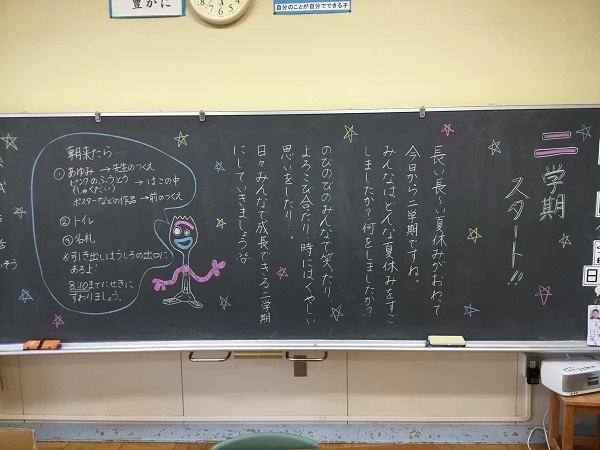 豊かに
自分のことが自分でできる子
二学期
スタート!!
長い長〜い夏休みがおわって
今日から二学期ですね。
みんなはどんな夏休みをすご
しましたか?何をしましたか?
のびのびのみんなで笑ったり、
よろこび合たり、時にはくやしい
思いをしたり…。
日々みんなで成長できる二学期
にしていきましょう
朝来たら…
① あゆみ → 先生のつくえ
ピンクのふうとう → はこの中
(しゅくだい)
ポスターなどの作品 → 前のつくえ
② トイレ
③ 名札
※引き出しはうしろの出口に
あるよ!
8:10までにせきに
すわりましょう。
日